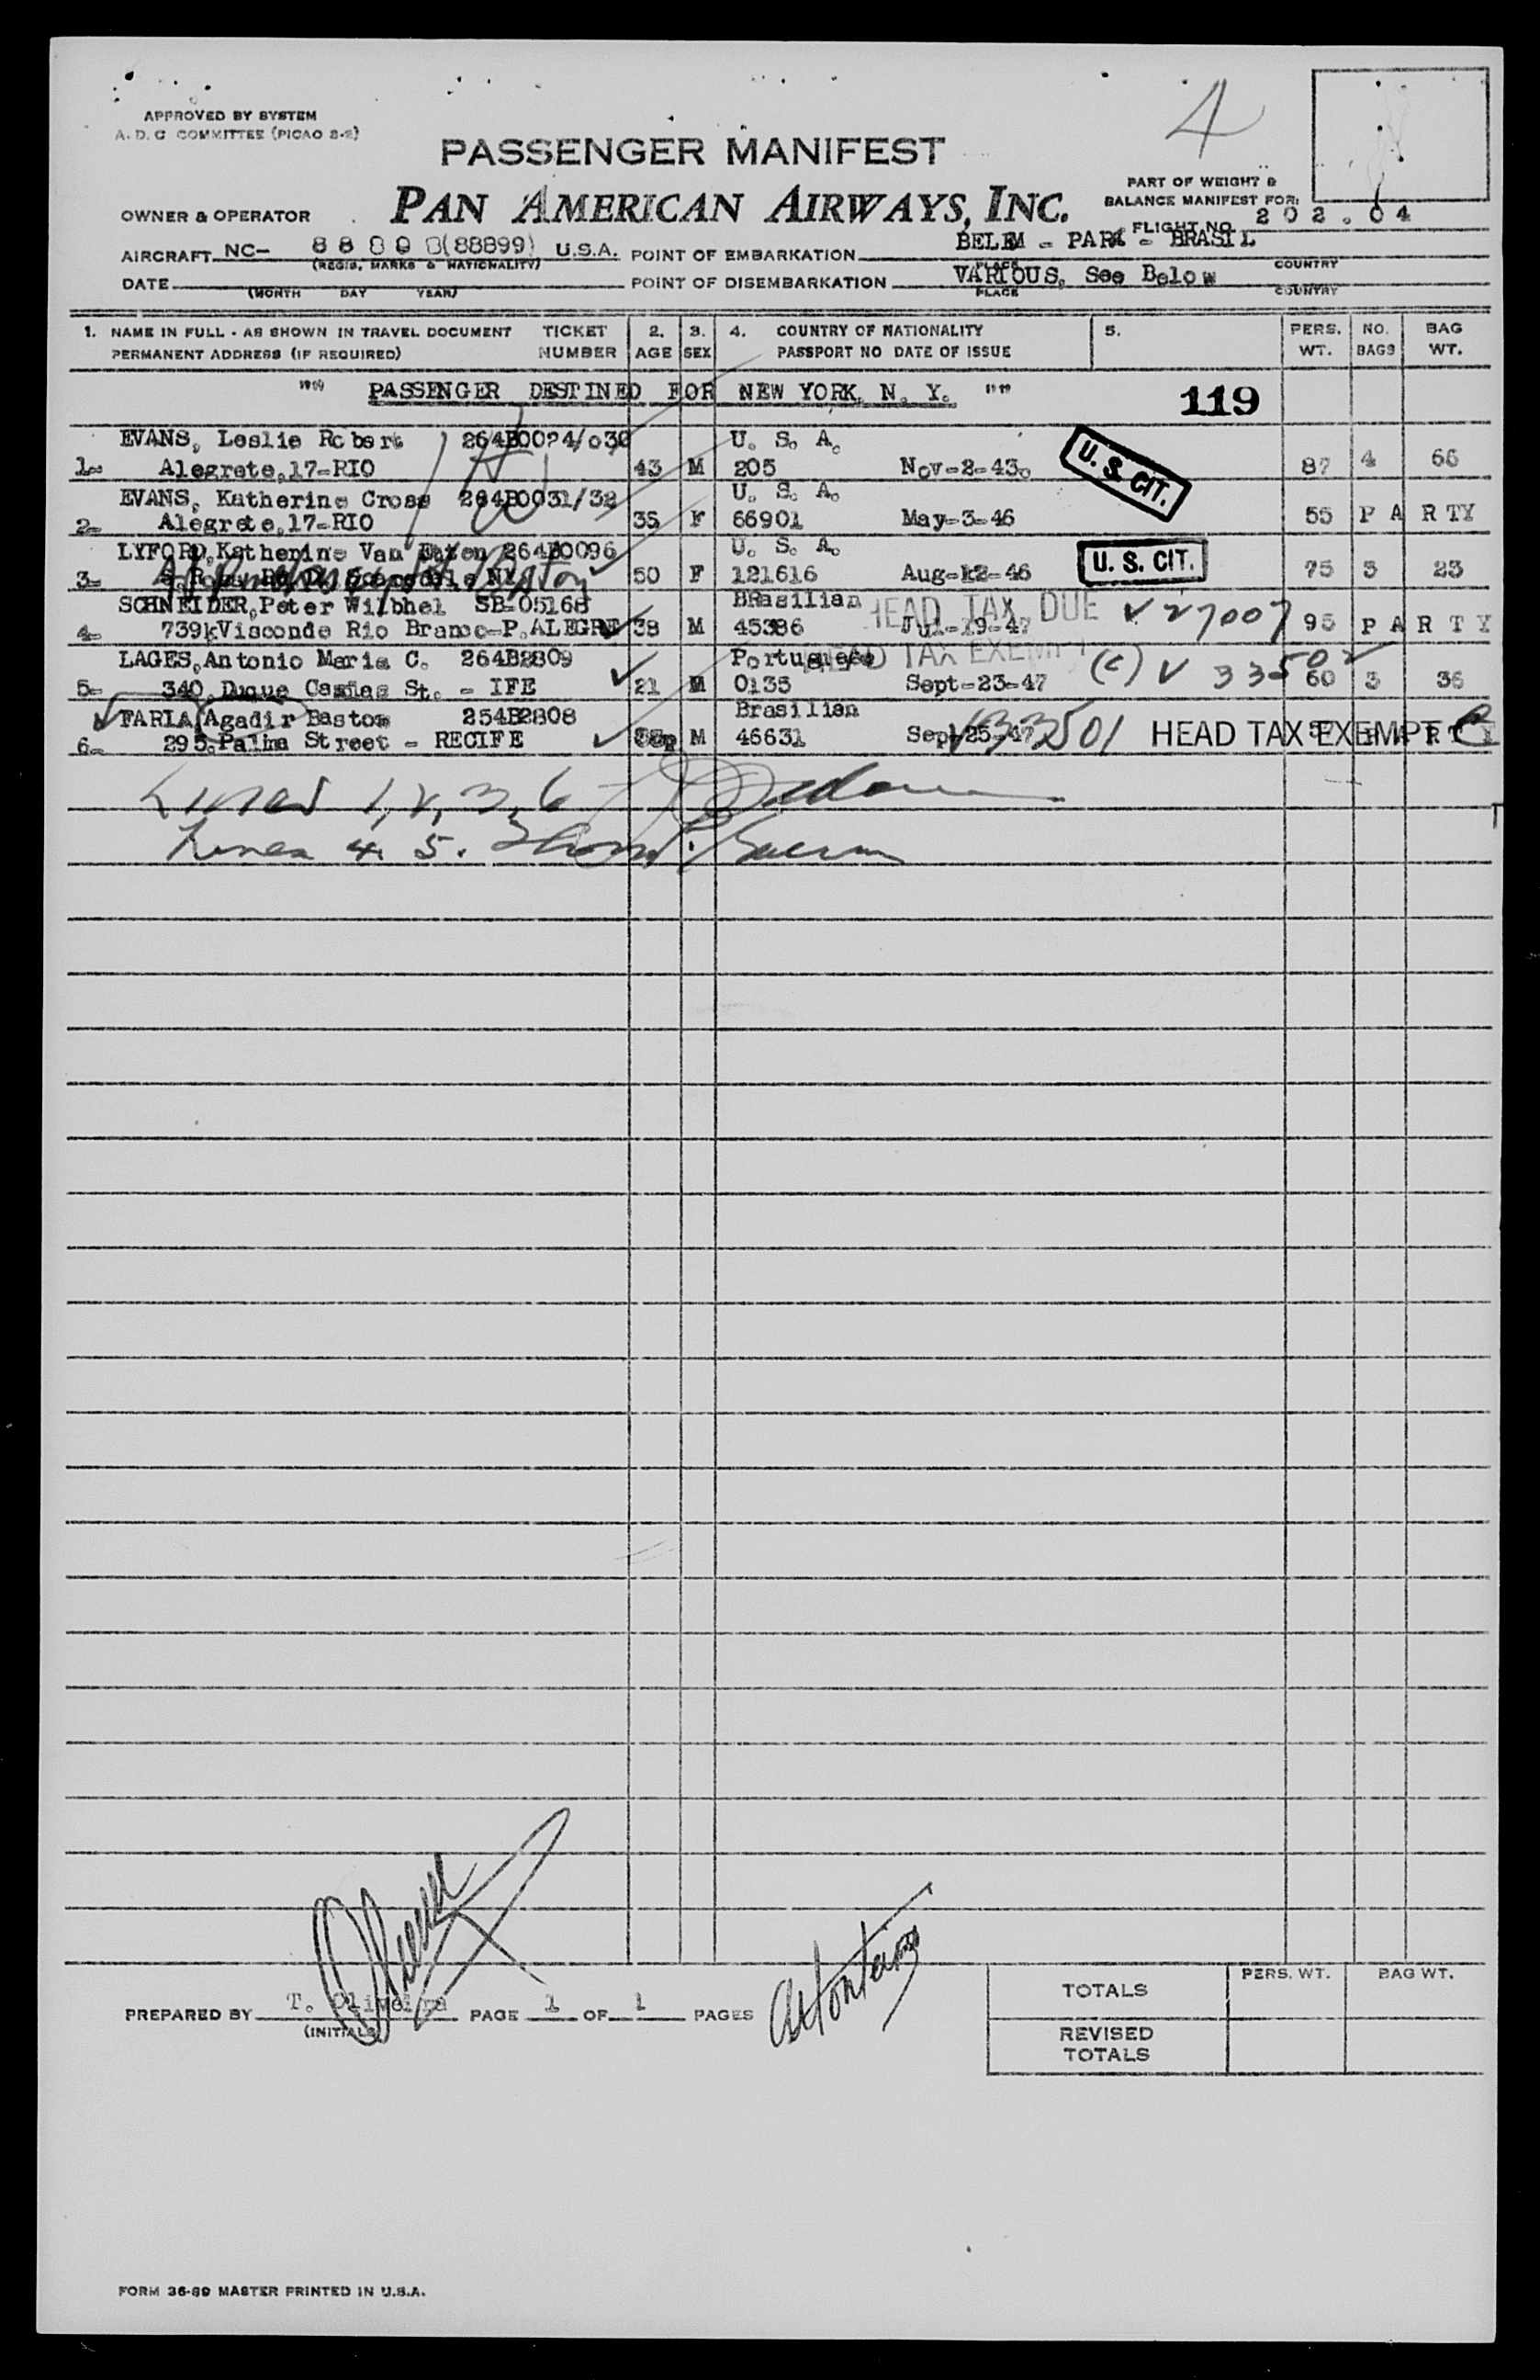 APPROVED BY SYSTEM
A. D. C COMMITTEE (PICAO 8-2)
4
PASSENGER MANIFEST
PART OF WEIGHT &
BALANCE MANIFEST FOR:
OWNER & OPERATOR PAN AMERICAN AIRWAYS, INC.
FLIGHT NO. 202.04
AIRCRAFT NC- (88899) U.S.A. POINT OF EMBARKATION BELEM - PARA - BRASIL
(REGIS, MARKS & NATIONALITY) PLACE COUNTRY
DATE POINT OF DISEMBARKATION VARIOUS, See Below
(MONTH DAY YEAR) PLACE COUNTRY
1. NAME IN FULL - AS SHOWN IN TRAVEL DOCUMENT TICKET 2. 3. 4. COUNTRY OF NATIONALITY 5. PERS. NO. BAG
PERMANENT ADDRESS (IF REQUIRED) NUMBER AGE SEX PASSPORT NO DATE OF ISSUE WT. BAGS WT.
PASSENGER DESTINED FOR NEW YORK, N. Y. 119
EVANS, Leslie Robert U. S. A.
1- Alegrete, 17-RIO 43 M 205 Nov-2-43. U. S. CIT. 87 4 66
EVANS, Katherine Cross 264B0031/32 U. S. A.
2- Alegrete, 17-RIO 35 F 66901 May-3-46 55 P A R T Y
LYFORD, Katherine Van 264B0096 U. S. A.
3- 50 F 121616 Aug-12-46 U. S. CIT. 75 3 23
SCHNEIDER, Peter Wilbhel SB-05168 BRasilian HEAD TAX DUE
4- 739 Visconde Rio Branco-P. ALEGRE 38 M 45386 Jul-19-47 27007 95 P A R T Y
LAGES, Antonio Maria C. 264B2809 Portuguese HEAD TAX EXEMPT
5- 340, Duque Caxias St. - IFE 21 M 0135 Sept-23-47 (c) 33502 60 3 36
FARIA, Agadir Bastos 254B2808 Brasilian
6- 295, Palma Street - RECIFE M 46631 Sep-25-47 33501 HEAD TAX EXEMPT
Lines 1, 2, 3, 6
Lines 4. 5.
PREPARED BY T. Oliveira PAGE 1 OF 1 PAGES
(INITIALS)
PERS. WT. BAG WT.
TOTALS
REVISED
TOTALS
FORM 36-89 MASTER PRINTED IN U.S.A.